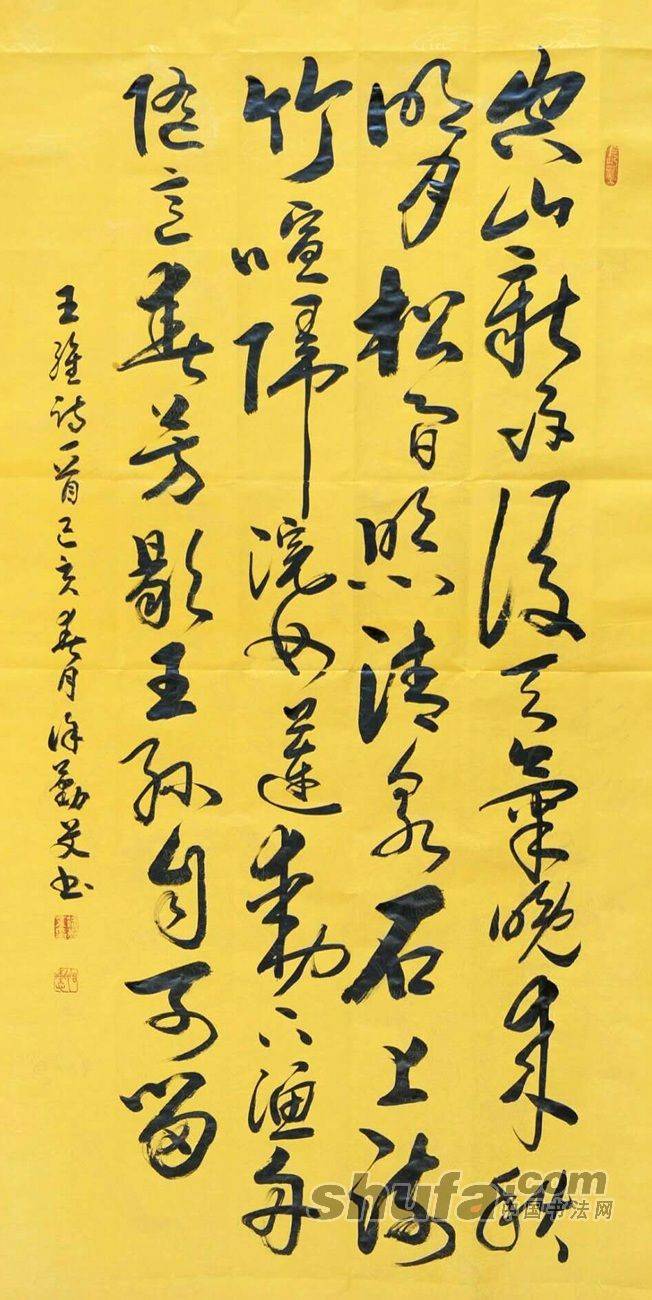 空山新雨後天氣晚来秋
明月松間照清泉石上流
竹喧歸浣女蓮動下漁舟
随意春芳歇王孫自可留
王維詩一首己亥春月徐勤书
shufa.com
中国书法网